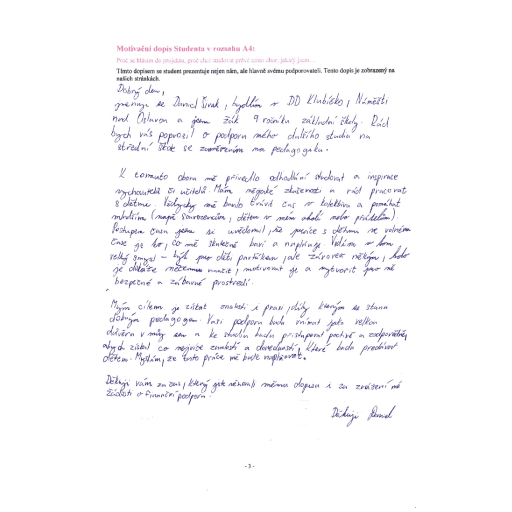 Motivační dopis Studenta v rozsahu A4:
Proč se hlásím do projektu, proč chci studovat právě tento obor, jaký/á jsem...
Tímto dopisem se student prezentuje nejen nám, ale hlavně svému podporovateli. Tento dopis je zobrazený na
našich stránkách.
Dobrý den,
jmenuji se Daniel, bydlím v DD Klubíčko, Náměšti
nad Oslavou a jsem žák 9 ročníku základní školy. Rád
bych vás poprosil o podporu mého dalšího studia na
střední škole se zaměřením na pedagogiku.
K tomuto oboru mě přivedlo odhodlání studovat a inspirace
vychovatelů či učitelů. Mám nějaké zkušenosti a rád pracovat
s dětmi. Vždycky mě bavilo trávit čas v kolektivu a pomáhat
mladším (např. sourozencům, dětem v mém okolí nebo přátelům).
Postupem času jsem si uvědomil, že práce s dětmi ve volném
čase je to, co mě skutečně baví a naplňuje. Vidím v tom
velký smysl – být pro děti parťákem, ale zároveň někým, kdo
je dokáže něčemu naučit, motivovat je a vytvořit pro ně
bezpečné a zábavné prostředí.
Mým cílem je získat znalosti i praxi, díky kterým se stanu
dobrým pedagogem. Vaši podporu budu vnímat jako velkou
důvěru v můj sen a ke studiu budu přistupovat poctivě a zodpovědně,
abych získal co nejvíce znalostí a dovedností, které budu předávat
dětem. Myslím, že tato práce mě bude naplňovat.
Děkuji vám za čas, který jste věnovali mému dopisu i za zvážení mé
žádosti o finanční podporu.
Děkuji Daniel
- 3 -